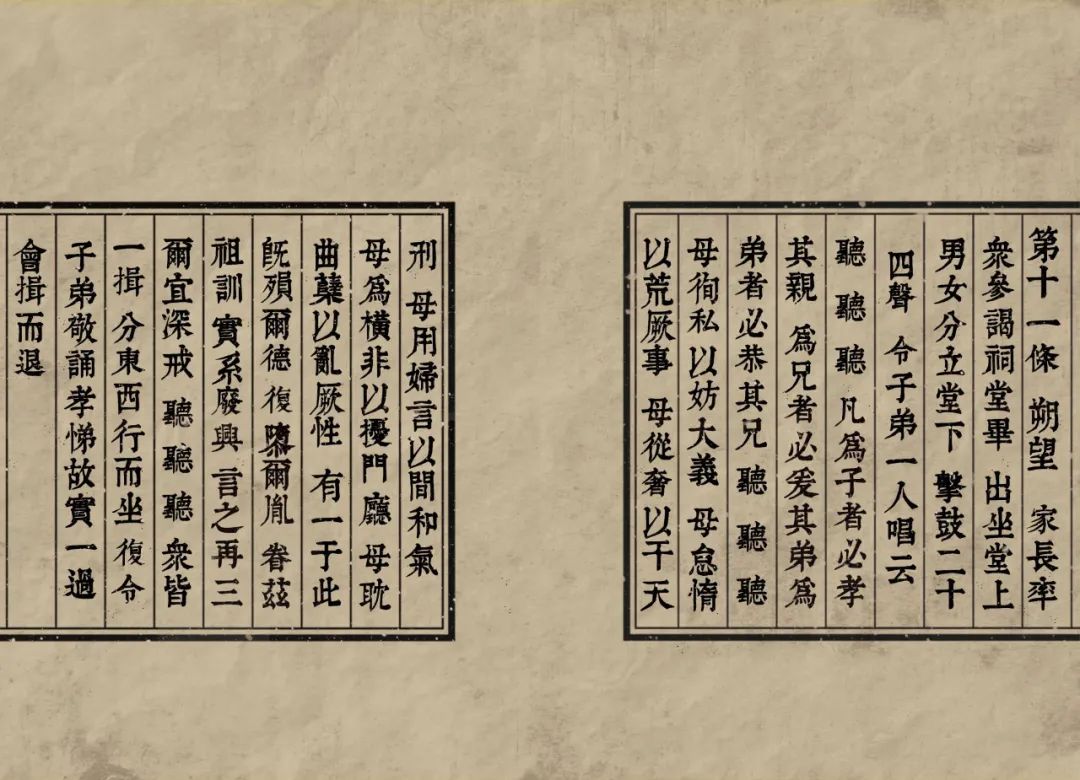 第十一條 朔望 家長率
衆參謁祠堂畢 出坐堂上
男女分立堂下 擊鼓二十
四聲 令子弟一人唱云
聽 聽 聽 凡爲子者必孝
其親 爲兄者必爰其弟爲
弟者必恭其兄 聽 聽 聽
母徇私以妨大義 母怠惰
以荒厥事 母從奢以干天
刑 母用婦言以間和氣
母爲橫非以擾門廳 母耽
曲蘖以亂厥性 有一于此
旣殞爾德復隳爾胤 眷茲
祖訓實系廢興 言之再三
爾宜深戒 聽 聽 聽 衆皆
一揖分東西行而坐 復令
子弟敬誦孝悌故實一過
會揖而退